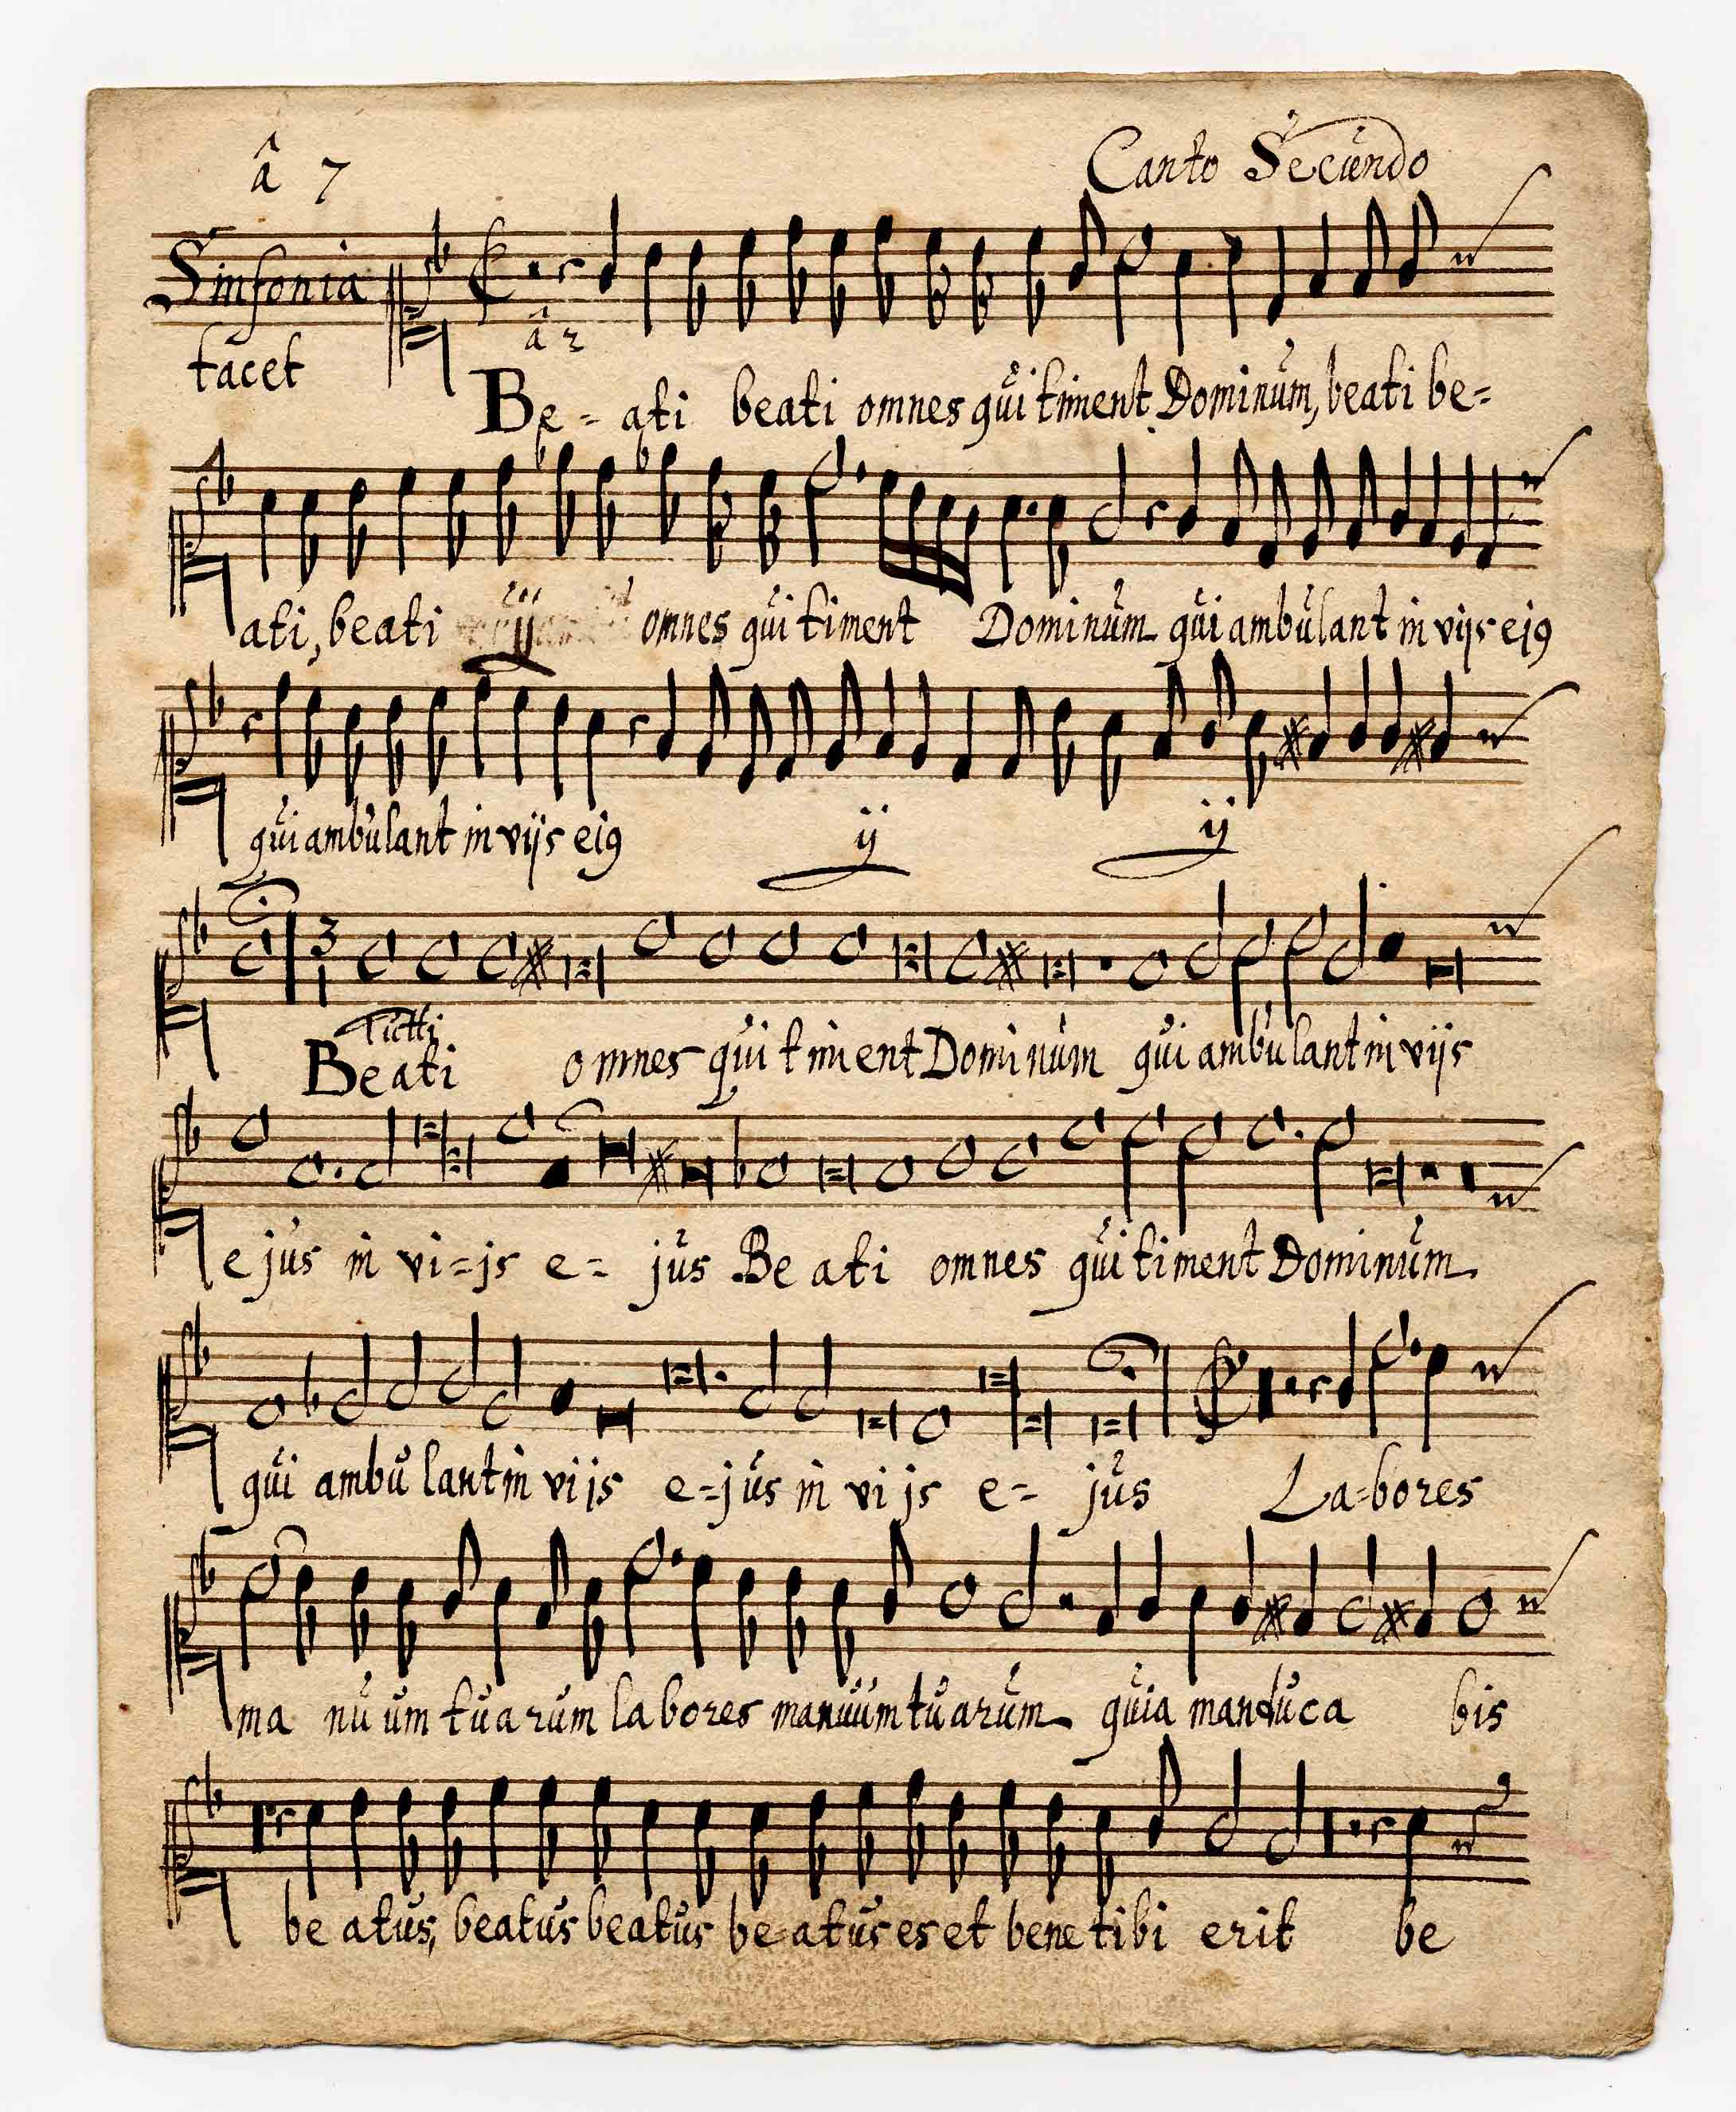 â 7 Canto Secundo
Sinfonia
tacet
â 2
Be = ati beati omnes qui timent Dominum, beati be=
ati, beati ij omnes qui timent Dominum qui ambulant in vijs ej9
qui ambulant in vijs ei9 ij ij
3
1
Tutti
Beati omnes qui timent Dominum qui ambulant in vijs
ejus in vi=js e= jus Be ati omnes qui timent Dominum
qui ambu lant in vi js e=jus in vi js e= jus La=bores
ma nu um tua rum la bores manuum tu arum quia manduca bis
be atus, beatus beatus be=atus es et bene tibi erit be